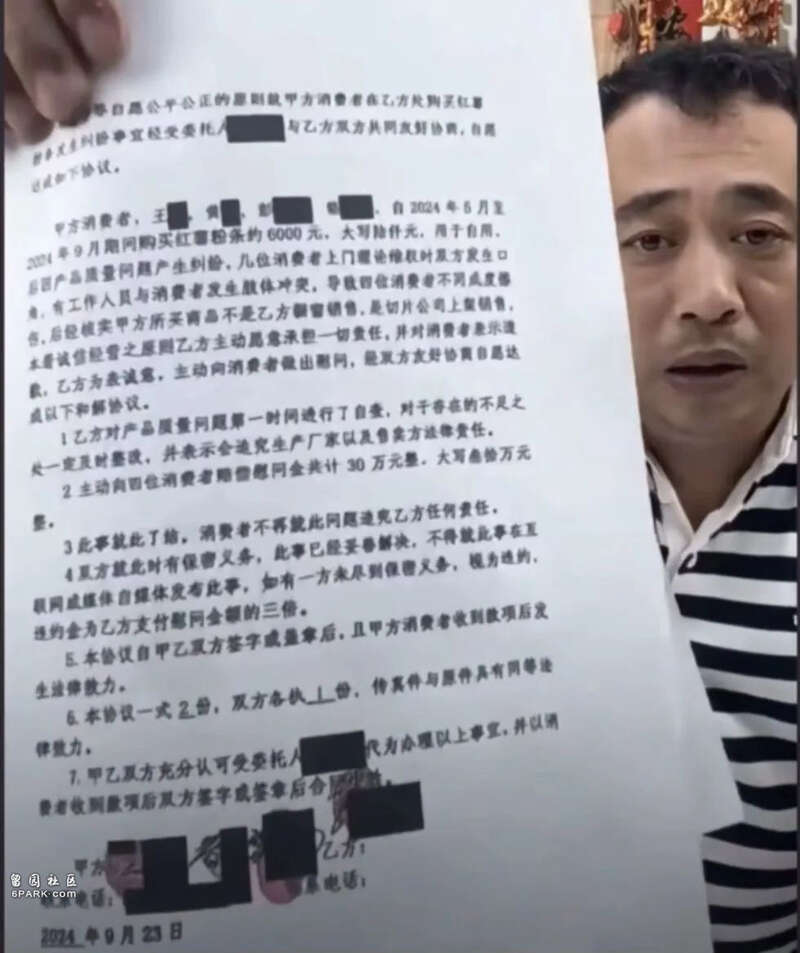 等自愿公平公正的原则就甲方消费者在乙方处购买红薯
粉条发生纠纷事宜经受委托人 与乙方双方共同友好协商，自愿
达成如下协议。
甲方消费者，王 ，黄 ，彭 ， ，自2024年5月至
2024年9月期间购买红薯粉条约6000元，大写陆仟元，用于自用，
后因产品质量问题产生纠纷，几位消费者上门理论维权时双方发生口
角，有工作人员与消费者发生肢体冲突，导致四位消费者不同成度
伤，后经核实甲方所买商品不是乙方橱窗销售，是切片公司上架销售，
本着诚信经营之原则乙方主动愿意承担一切责任，并对消费者表示道
歉，乙方为表诚意，主动向消费者做出慰问，经双方友好协商自愿达
成以下和解协议。
1乙方对产品质量问题第一时间进行了自查，对于存在的不足之
处一定及时整改，并表示会追究生产厂家以及售卖方法律责任。
2 主动向四位消费者赔偿慰问金共计 30 万元整，大写叁拾万元
整。
3 此事就此了结，消费者不再就此问题追究乙方任何责任。
4 双方就此时有保密义务，此事已经妥善解决，不得就此事在互
联网或媒体自媒体发布此事，如有一方未尽到保密义务，视为违约，
违约金为乙方支付慰问金额的三倍。
5. 本协议自甲乙双方签字或盖章后，且甲方消费者收到款项后发
生法律效力。
6. 本协议一式 2 份，双方各执 1 份，传真件与原件具有同等法
律效力。
7. 甲乙双方充分认可受委托人 代为办理以上事宜，并以消
费者收到款项后双方签字或签章后合同
甲方 乙方：
电话： 系电话：
2024 年 9 月 23 日
留园社区
6PARK.com